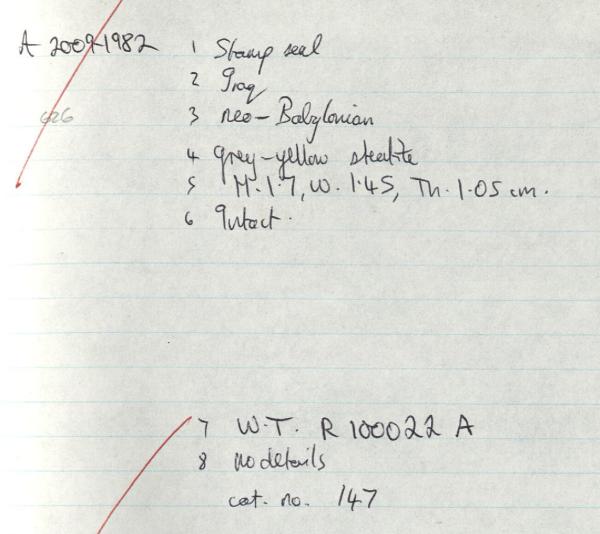 A 2009-1982 1 Stamp seal
2 Iraq
626 3 neo-Babylonian
4 grey-yellow steatite
5 H. 1·7, W. 1·45, Th. 1·05 cm.
6 Intact.
7 W.T. R 100022 A
8 no details
cat. no. 147